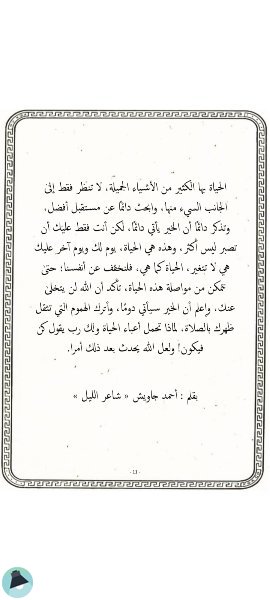 الحياة بها الكثير من الأشياء الجميلة، لا تنظر فقط إلى
الجانب السيء منها، وابحث دائمًا عن مستقبل أفضل،
وتذكر دائمًا أن الخير يأتي دائمًا، لكن أنت فقط عليك أن
تصبر ليس أكثر، وهذه هي الحياة، يوم لك ويوم آخر عليك
هي لا تتغير، الحياة كما هي. فلنخفف عن أنفسنا؛ حتى
نتمكن من مواصلة هذه الحياة، تأكد أن الله لن يتخلى
عنك، واعلم أن الخير سيأتي دومًا، وأترك الهموم التي تثقل
ظهرك بالصلاة، لماذا تحمل أعباء الحياة ولك رب يقول كن
فيكون! ولعل الله يحدث بعد ذلك أمرا.
بقلم : أحمد جاويش « شاعر الليل »